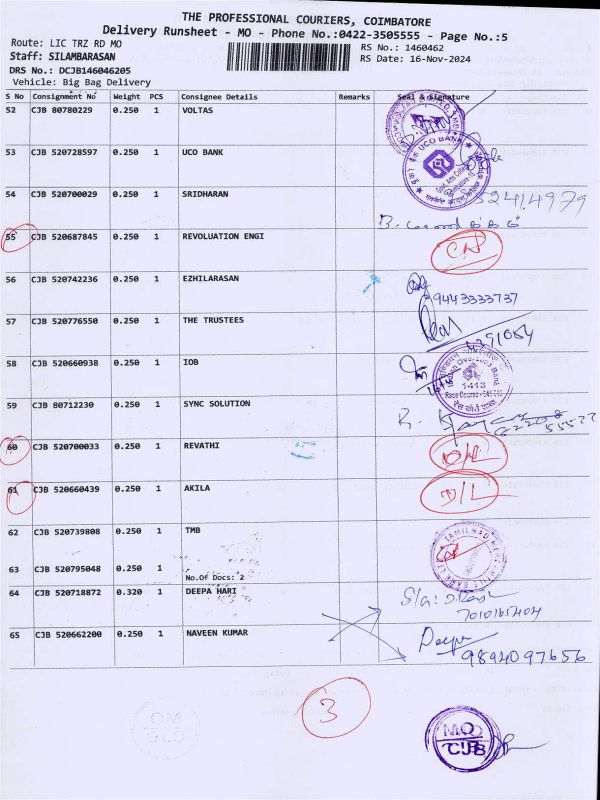 THE PROFESSIONAL COURIERS, COIMBATORE
Delivery Runsheet - MO - Phone No.:0422-3505555 - Page No.:5
Route: LIC TRZ RD MO
RS No.: 1460462
Staff: SILAMBARASAN
RS Date: 16-Nov-2024
DRS No.: DCJB146046205
Vehicle: Big Bag Delivery
S No Consignment No Weight PCS Consignee Details Remarks Seal & Signature
52 CJB 80780229 0.250 1 VOLTAS
53 CJB 520728597 0.250 1 UCO BANK
UCO BANK
54 CJB 520700029 0.250 1 SRIDHARAN
55 CJB 520687845 0.250 1 REVOLUATION ENGI
56 CJB 520742236 0.250 1 EZHILARASAN
9443333737
57 CJB 520776550 0.250 1 THE TRUSTEES
58 CJB 520660938 0.250 1 IOB
1413
Race Course
59 CJB 80712230 0.250 1 SYNC SOLUTION
60 CJB 520700033 0.250 1 REVATHI D/L
61 CJB 520660439 0.250 1 AKILA D/L
62 CJB 520739808 0.250 1 TMB
63 CJB 520795048 0.250 1
No.Of Docs: 2
64 CJB 520718872 0.320 1 DEEPA HARI
7010165404
65 CJB 520662200 0.250 1 NAVEEN KUMAR Deepa
9894097656
3
MO
CJB